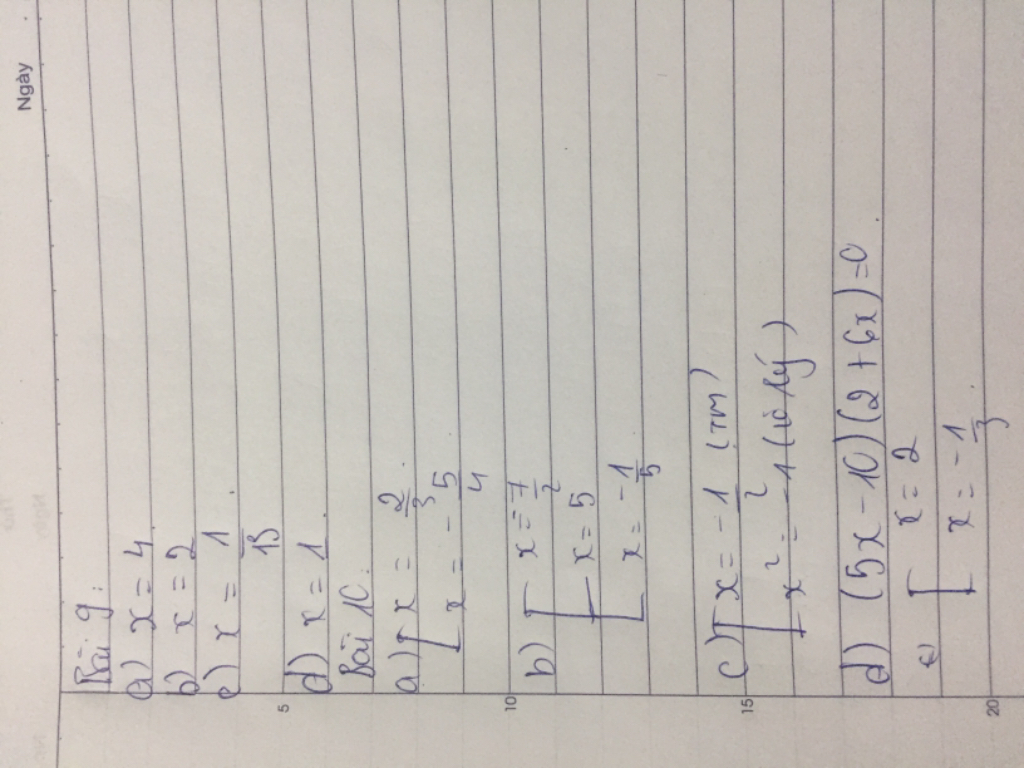 Ngày
Bài 9:
a) x = 4
b) x = 2
c) x = 1/13
d) x = 1
Bài 10:
a) [ x = 2/3
[ x = - 5/4
b) [ x = -7/2
[ x = 5
[ x = - 1/5
c) [ x = - 1/2 (TM)
[ x² = -1 (vô lý)
d) (5x - 10)(2 + 6x) = 0
[ x = 2
[ x = - 1/3
5
10
15
20